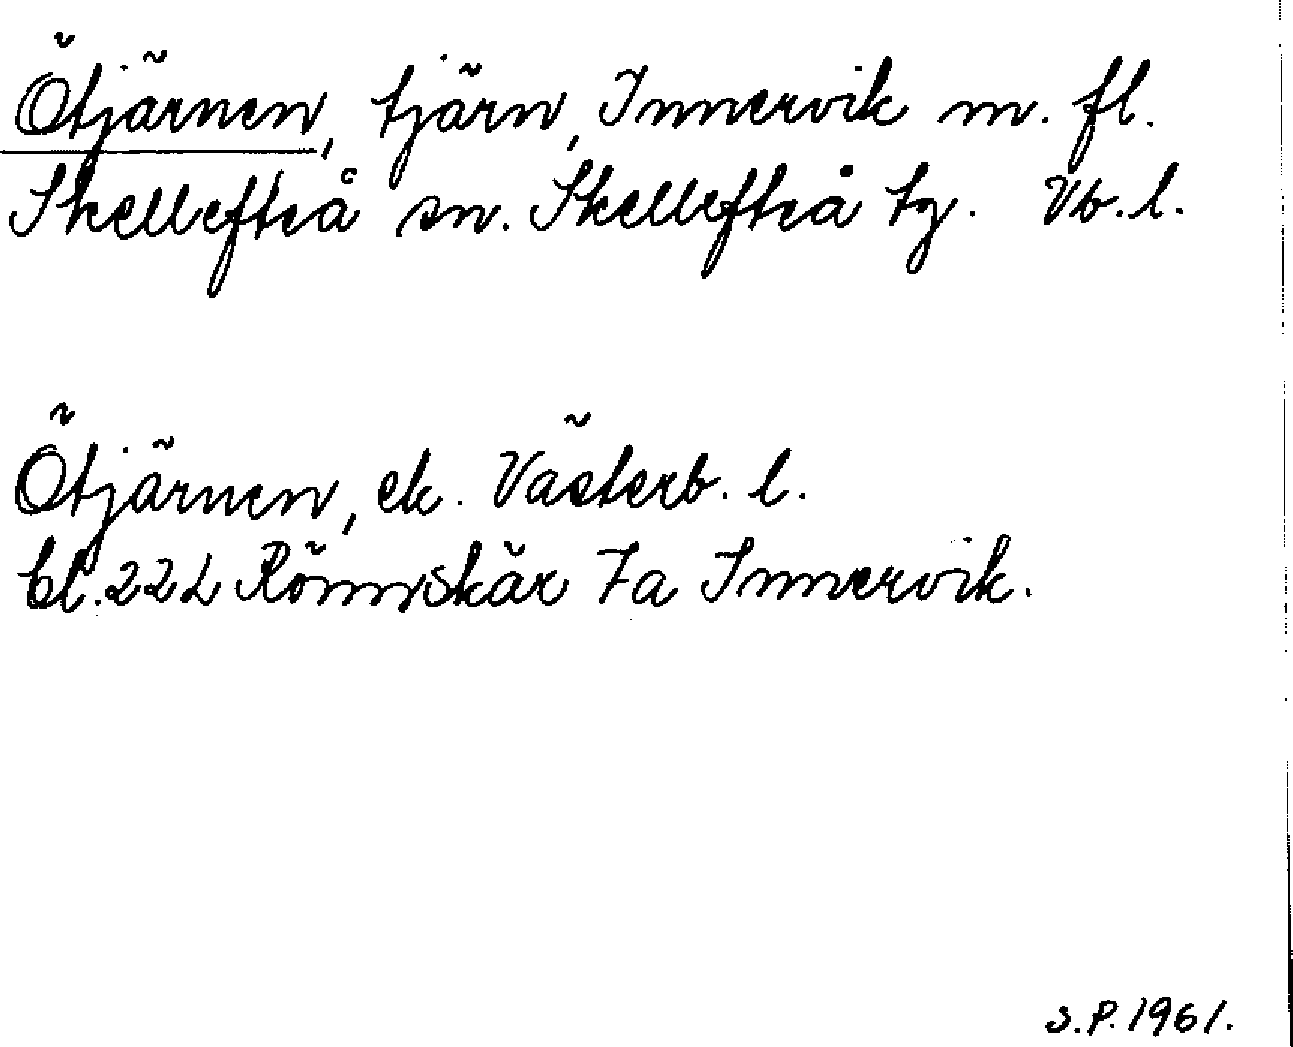 Ötjärnen, tjärn, Innervik m. fl.
Skellefteå sn. Skellefteå tg. Vb. l.
Ötjärnen, ek. Västerb. l.
bl. 22L Rönnskär 7a Innervik.
S.P. 1961.